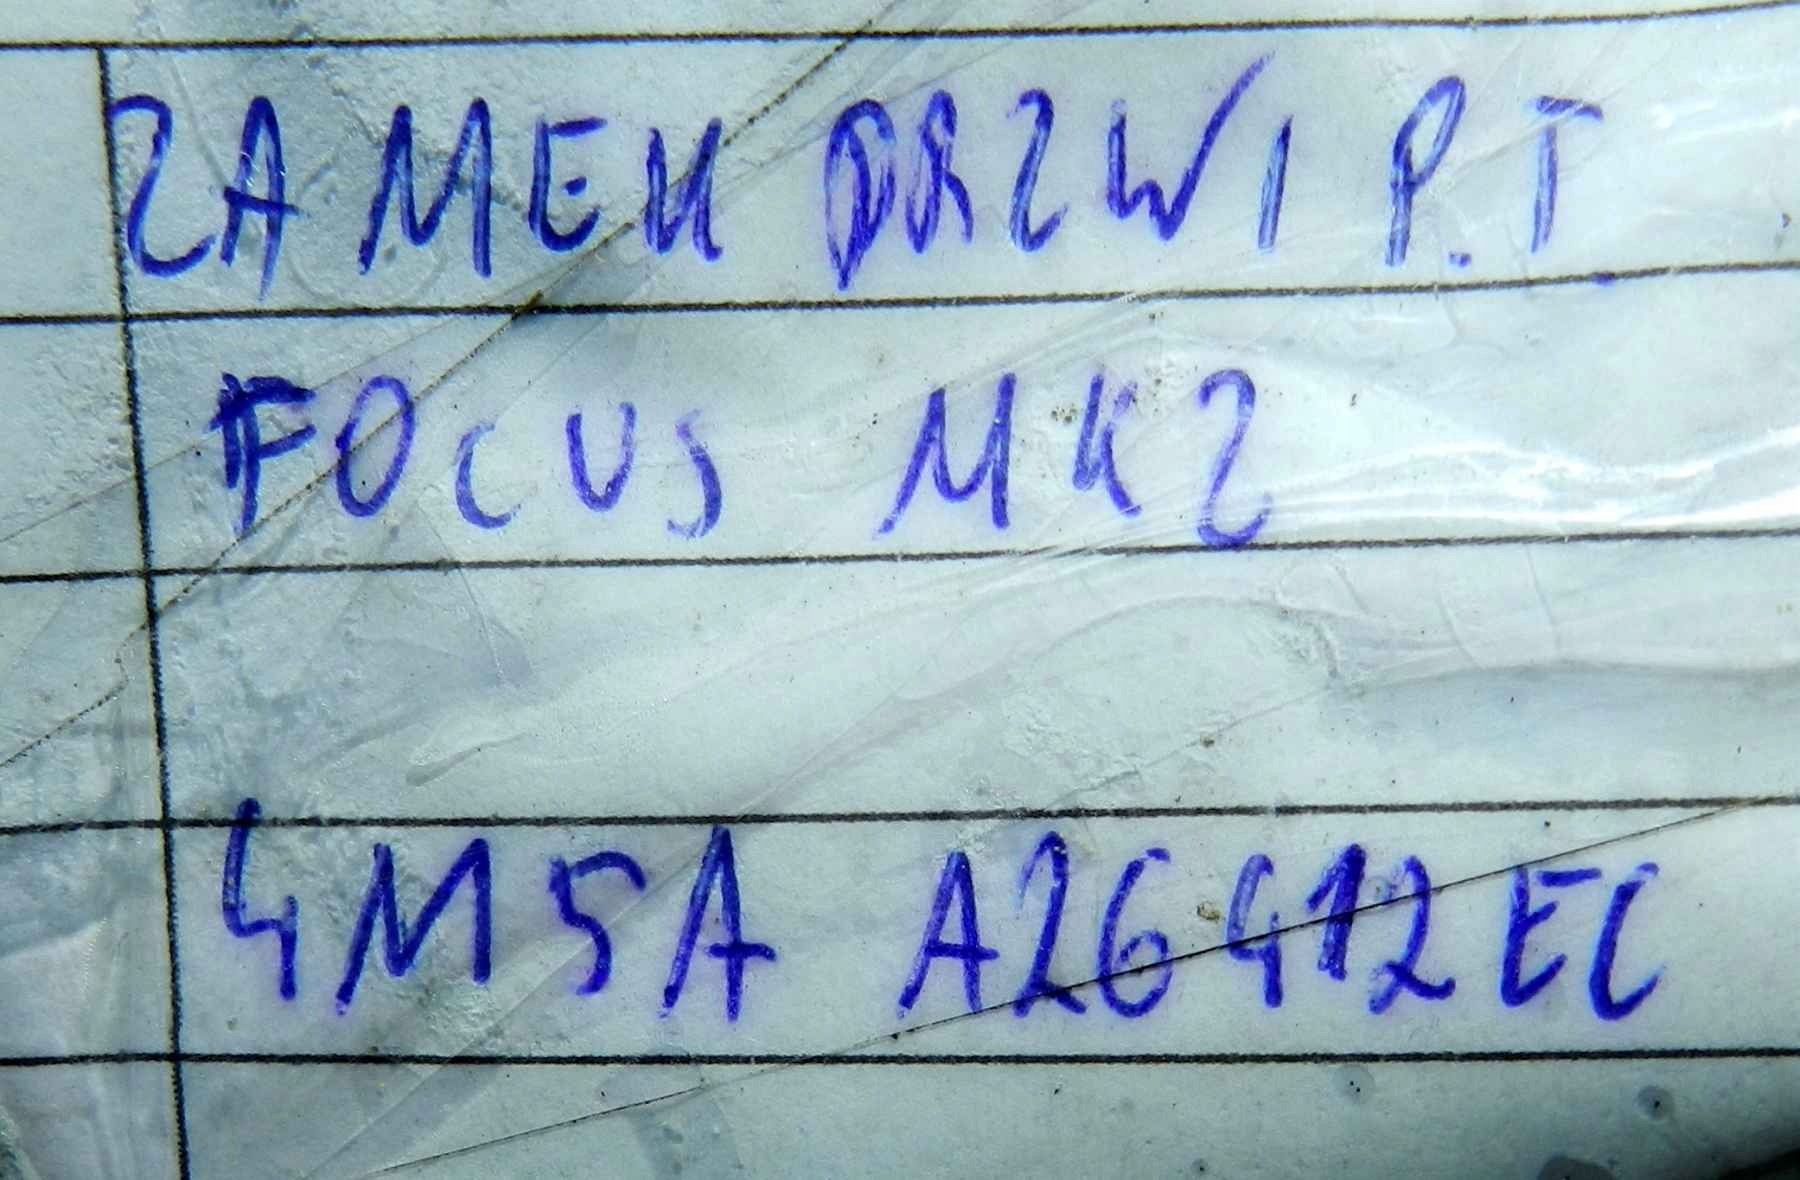 ZAMEK DRZWI P.T
FOCUS MK2
4M5A A26412EC